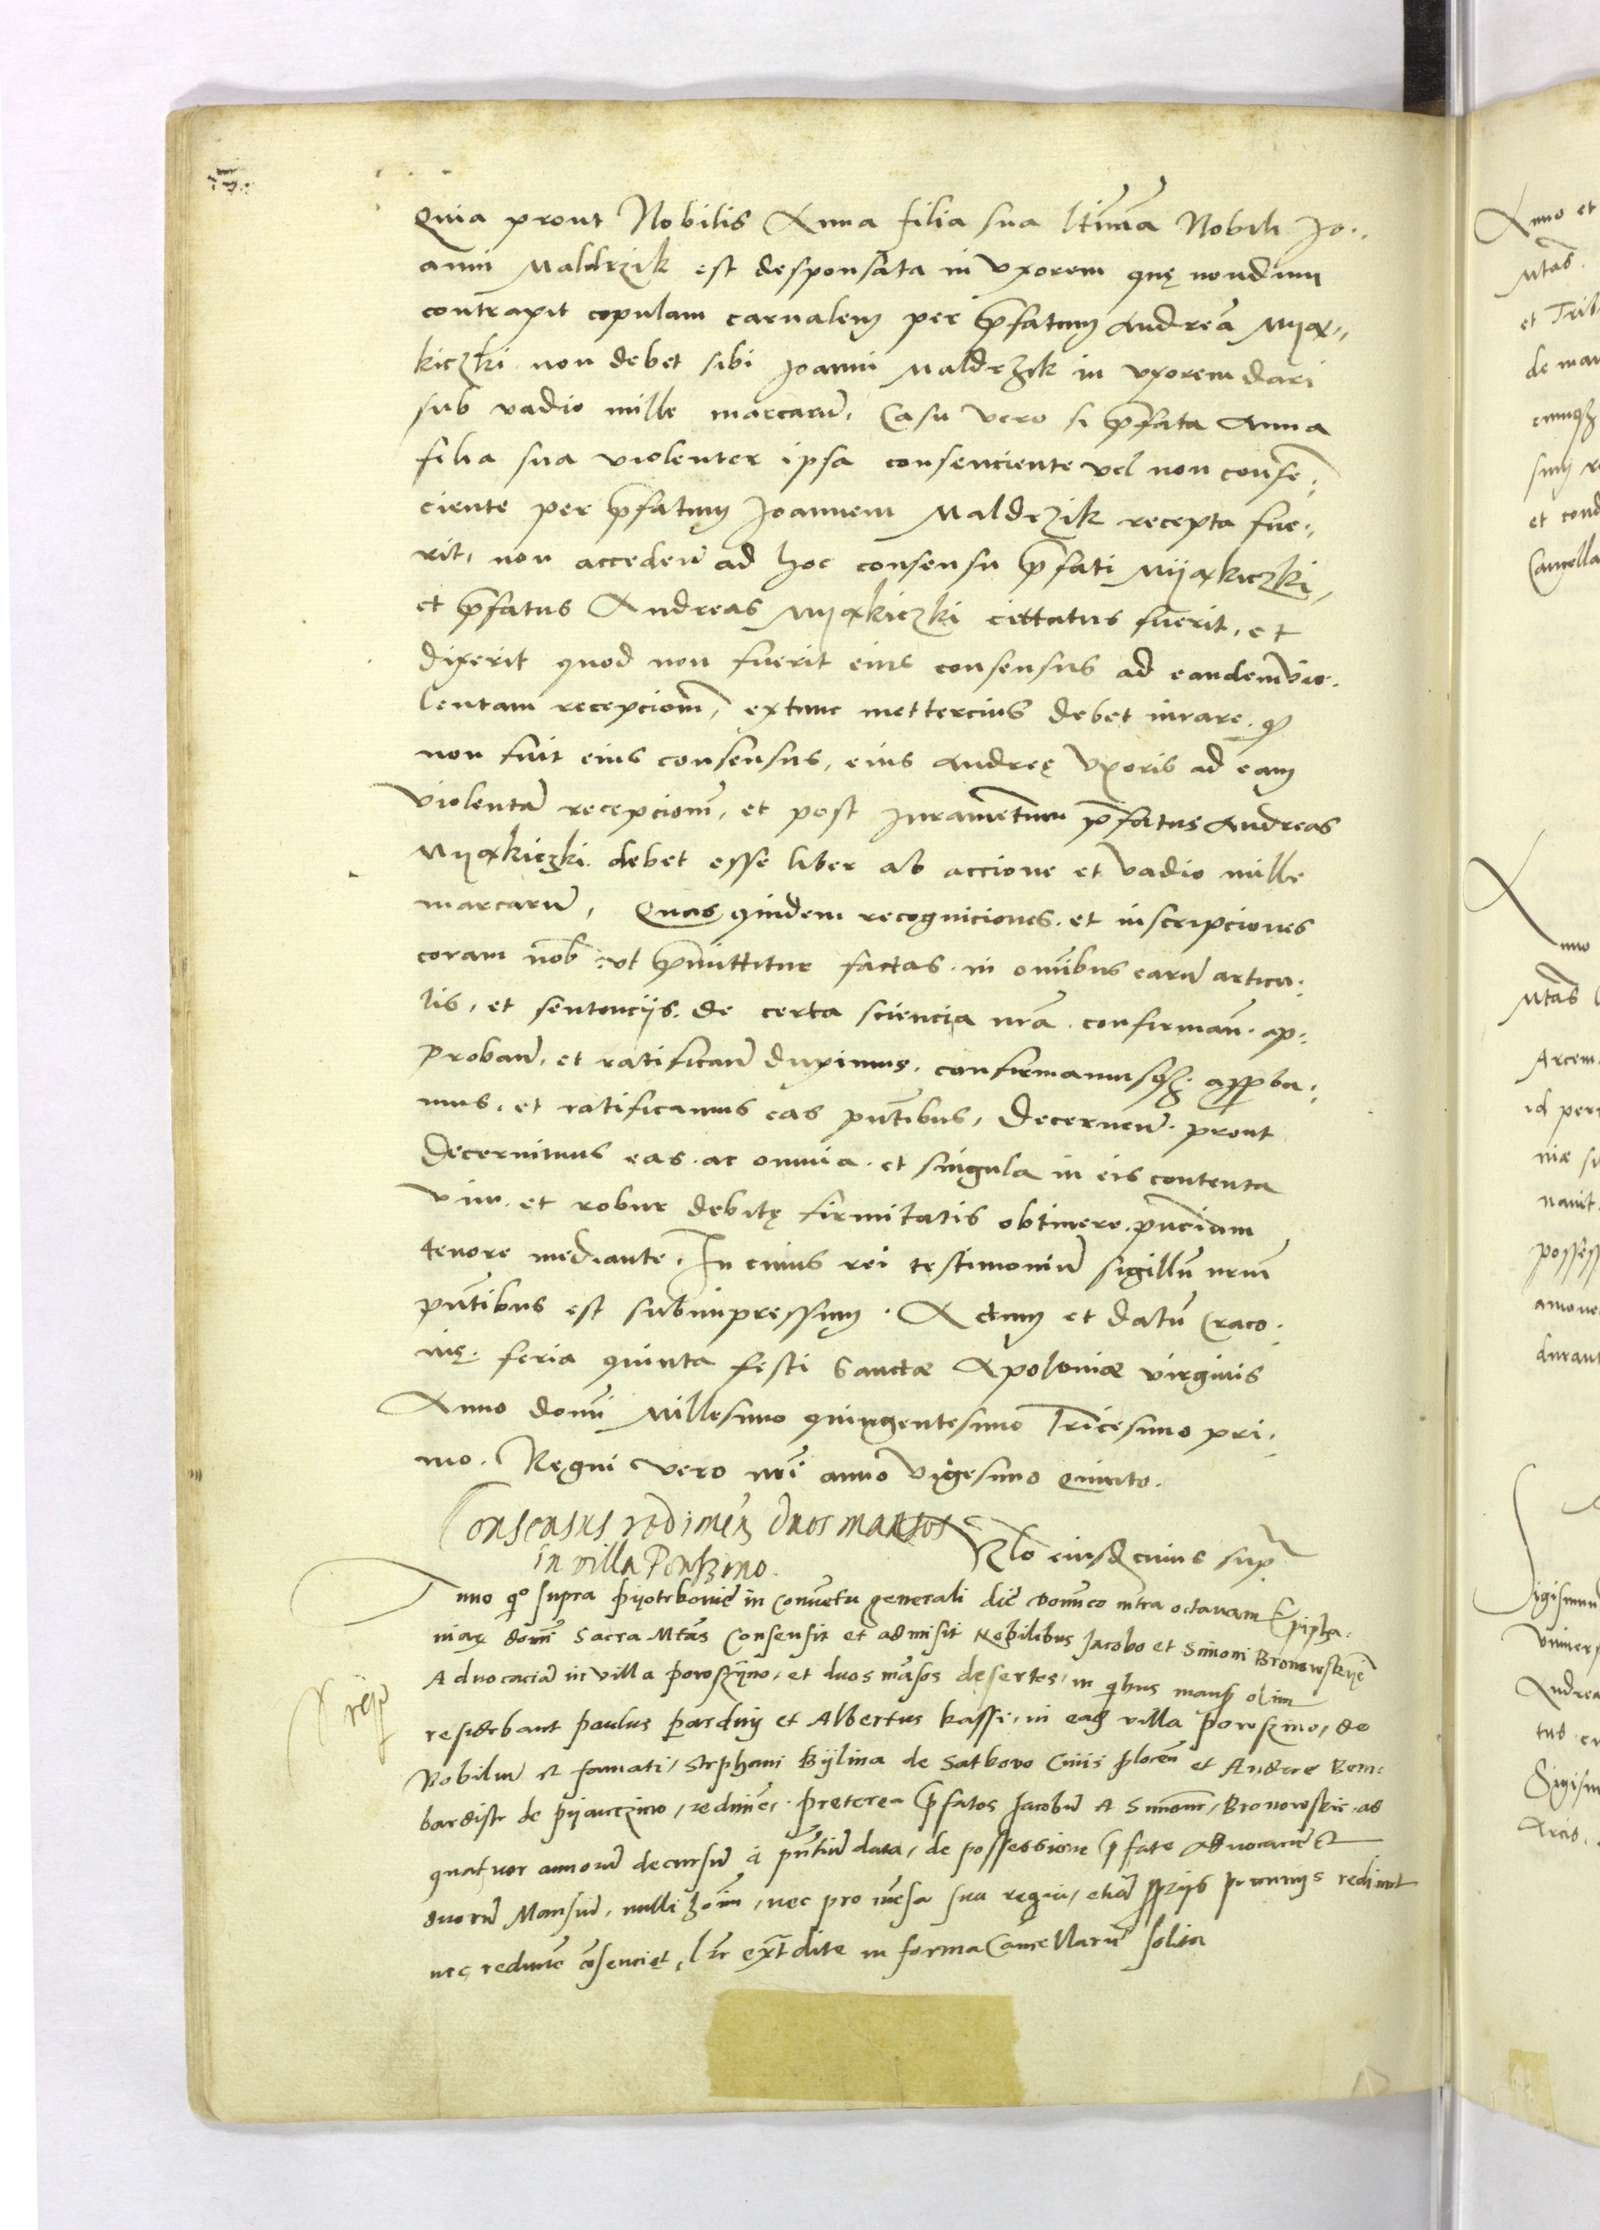 Quia prout Nobilis Anna filia sua ltima Nobili Jo-
anni Maldrzik est desponsata in uxorem quę nondum
contraxit copulam carnalem per pfatum Andreā Myax-
kiczki non debet sibi Joanni Maldrzik in uxorem dari
sub vadio mille marcarū. Casu vero si pfata Anna
filia sua violenter ipsa consenciente vel non consē-
ciente per pfatum Joannem Maldrzik recepta fue-
rit, non acceden ad hoc consensu pfati Myaxkiczki,
et pfatus Andreas Myaxkiczki cittatus fuerit, et
dixerit quod non fuerit eius consensus ad eandem vio-
lentam recepcionē, extunc mettercius debet iurare q
non fuit eius consensus, eius Andreę Uxoris ad eam
violentā recepcionē, et post Juramentum pfatus Andreas
Myaxkiczki debet esse liber ab accione et vadio mille
marcarū, Quas quidem recogniciones et inscripciones
coram nob ut pmittitur factas in omibus earū articu-
lis, et sentencijs de certa sciencia nrā confirman ap-
proban et ratifican duximus, confirmamusq approba-
mus, et ratificamus eas pntibus, Decernen prout
Decernimus eas ac omnia et singula in eis contenta
vim et robur debitę firmitatis obtinere pnciam
tenore mediante, In cuius rei testimoniū sigillū nrum
pntibus est subimpressum. Actum et datū Craco-
nię feria quinta festi Sanctæ Apoloniæ virginis
Anno domi Millesimo quingentesimo Tricesimo pri-
mo. Regni vero nri anno vigesimo quinto.
Consensus redimen duos mansos
in villa
Rlo eiusd cuius supra
Anno qo supra Pyotrkovie in Conventu generali die Domico infra octavam Epipha-
niaę domi Sacra Mtas Consensit et admisit Nobilibus Jacobo et Simoni Bronowskye
Advocaciā in villa Poroszyno, et duos māsos desertos, in qibus mansis olim
residebant Paulus Parduy et Albertus Kassi, in ead villa Poroszino, de
Nobiliu et famati, Stephani Bylina de Civis et Andree Bom-
bardistę de redimē. Preterea pfatos Jacobū A Simonē, Bronowskie ab
quatuor annorū decursū a pntiū data, de possessione pfate advocacie et
duorū Mansiū, nulli hoīm, nec pro mēsa sua regia, etiā pprijs pecunijs redimet
nec redimē cōsenciet, lre extdite in forma Cancellariē solita